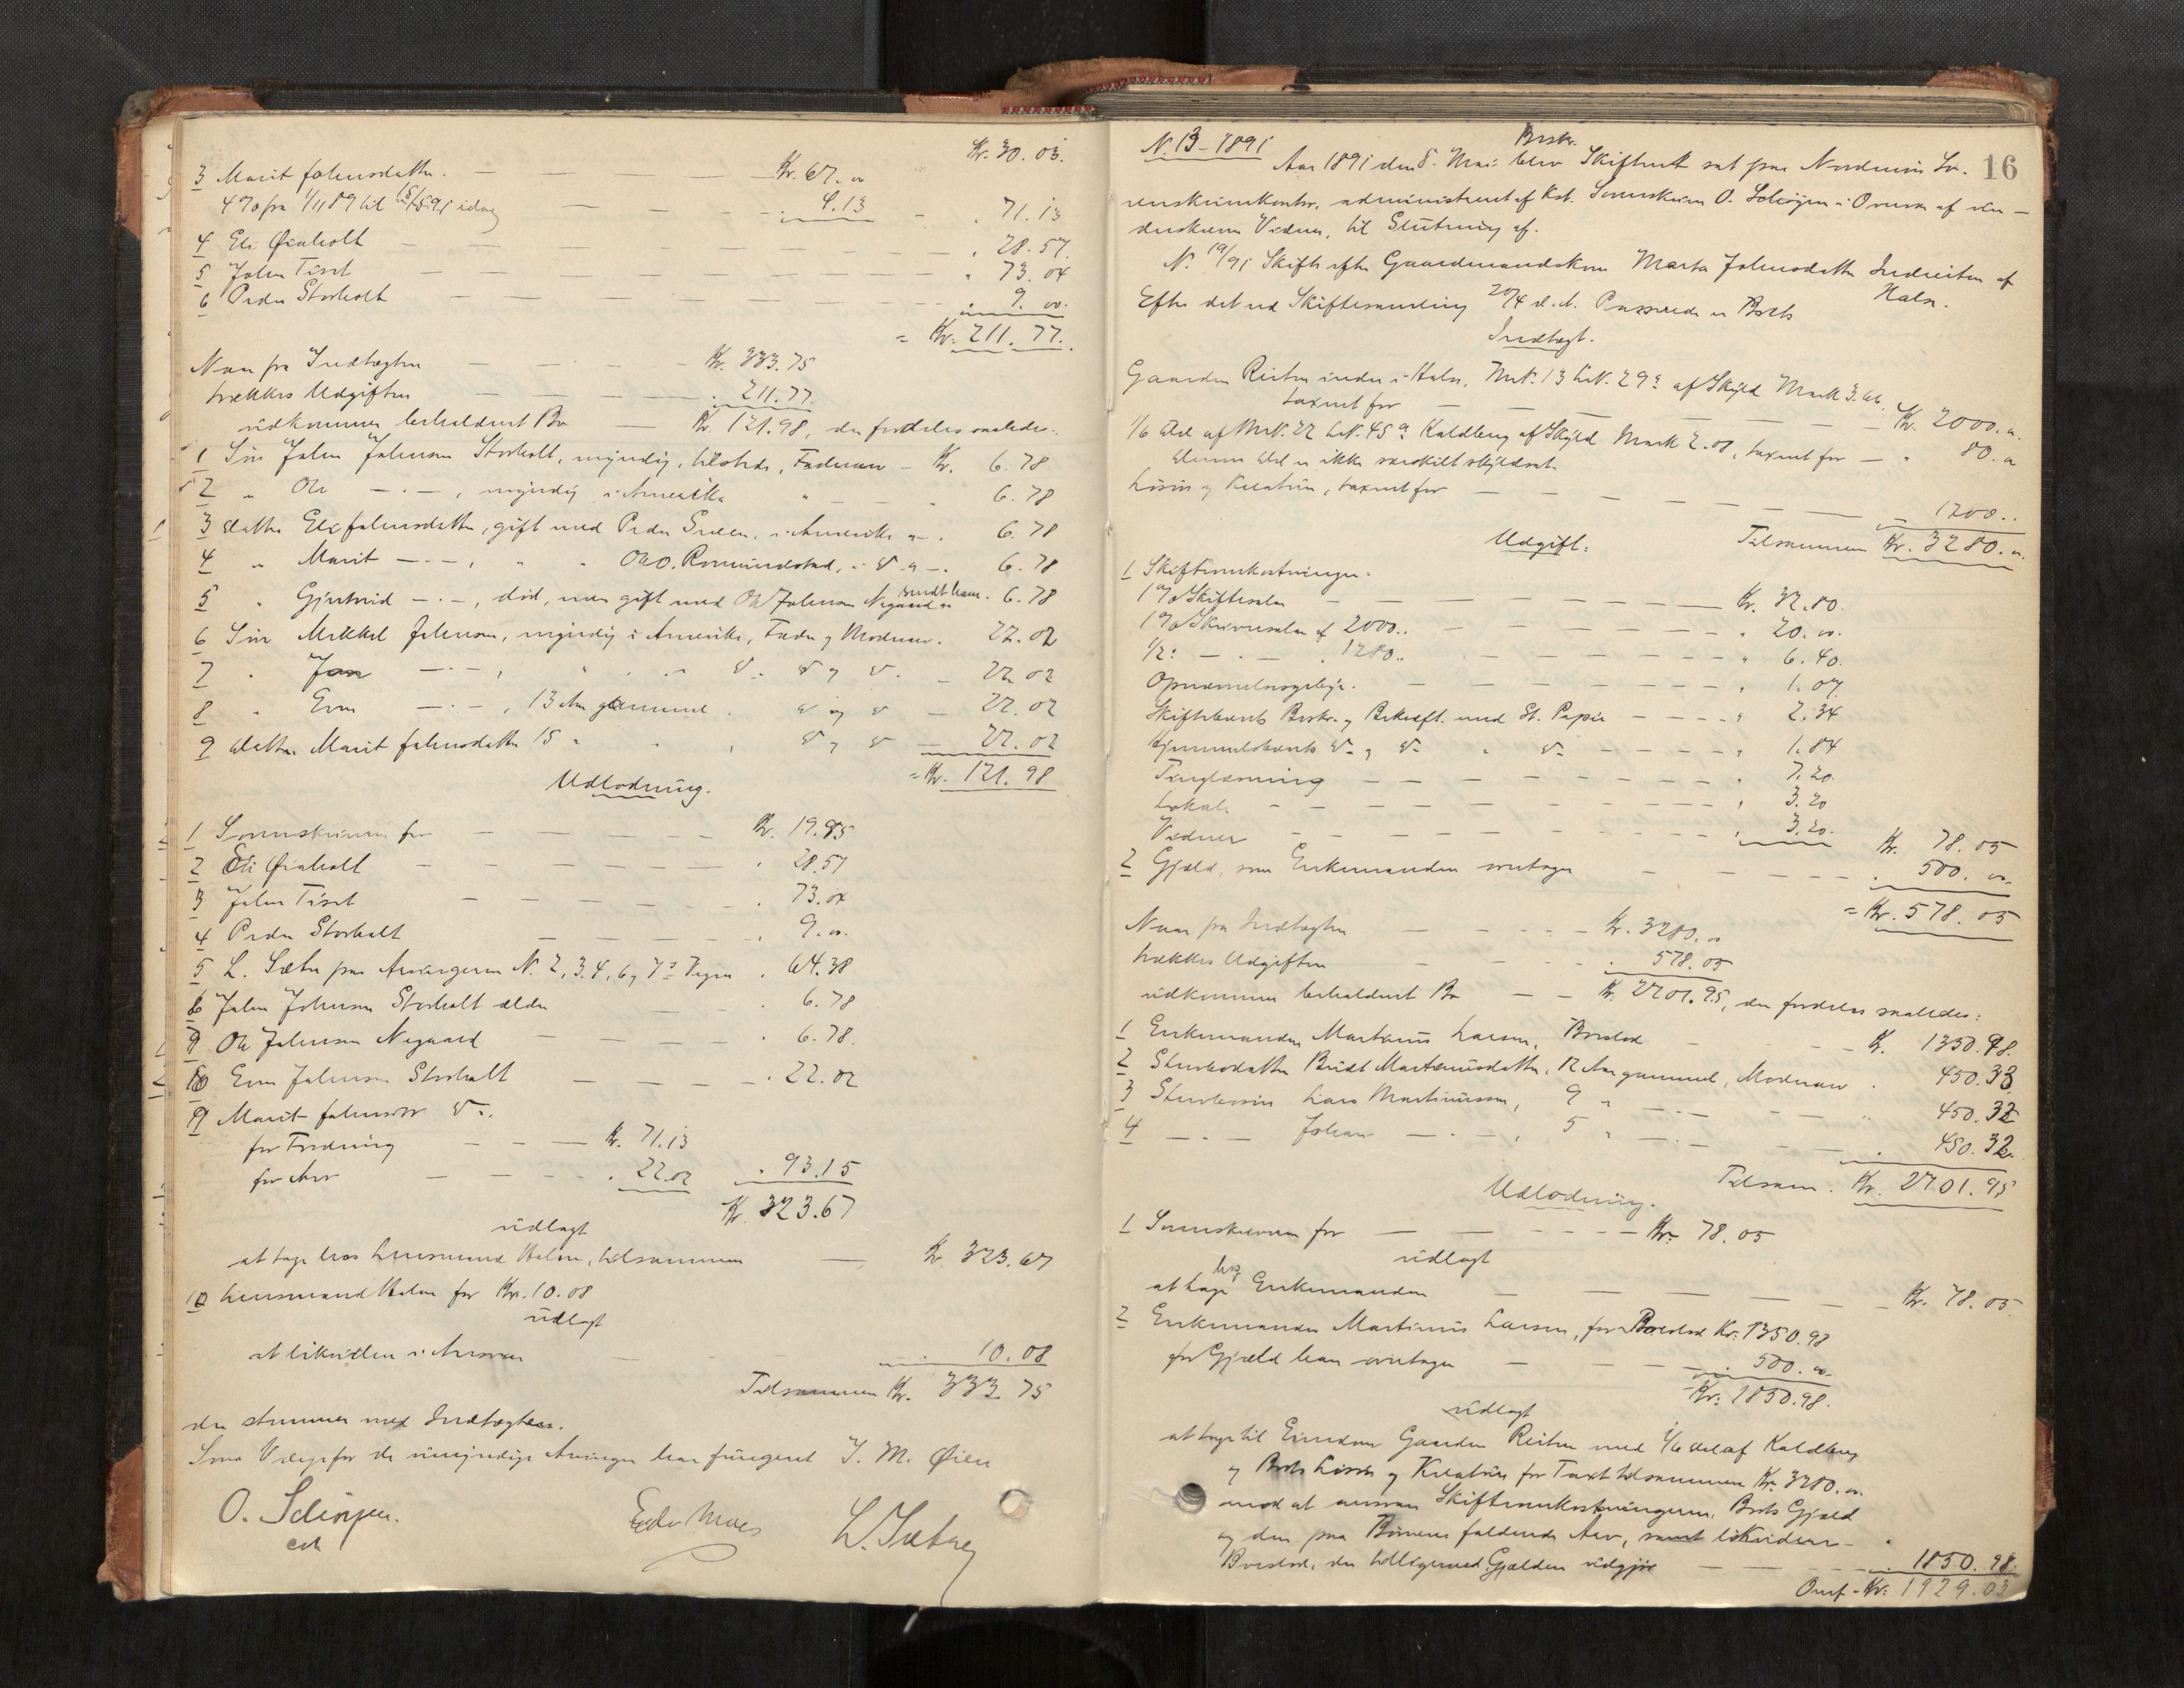 Kr. 30.03.
3 Marit Johnsdatter. — — — Kr. 67. "
4 % fra 1/11 89 til 15/5 91 idag — — — 4.13 — " 71.13
4 Eli Øiaholt — — — " 28.57.
5 John Tiset — — — " 73.04
6 Peder Storholt — — — " 9. oo.
= Kr. 211.77.
Naar fra Indtægten — — — Kr. 333.75
trækkes Udgiften — — — " 211.77.
udkommer beholdent Bo — Kr. 121.98, der fordeles saaledes:
1 Søn John Johnsen Storholt, myndig, tilstede, Faderarv — Kr. 6.78
2 " Ole — " —, myndig i Amerika " — — 6.78
3 Datter Eli Johnsdatter, gift med Peder Green, i Amerika " — " 6.78
4 " Marit — " —, " " Ole O. Romundstad, i D. " — " 6.78
5 " Gjertrud — " —, død, var gift med Ole Johnsen Nygaard " 6.78
6 Søn Mikkel Johnsen, myndig i Amerika, Fader og Moderarv. 22.02
7 " Jon — " —, " " " D. D og D. — 22.02
8 " Even — " —, 13 Aar gammel. D og D — 22.02
9 Datter Marit Johnsdatter 15 " " , D og D — 22.02
= Kr. 121.98
Udlodning.
1 Sorenskriveren for — — — Kr. 19.95
2 Eli Øiaholt — — — " 28.57
3 John Tiset — — — " 73.04
4 Peder Storholt — — — " 9. oo.
5 L. Sæter paa Arvingerne N. 2, 3, 4, 6 og 7s Vegne " 64.38
6 John Johnsen Storholt ældre — — " 6.78
7 Ole Johnsen Nygaard — — " 6.78.
8 Even Johnsen Storholt — — — " 22.02
9 Marit Johnsdtr D.
for Fordring — — — Kr. 71.13
for Arv — — — " 22.02 " 93.15
Kr. 323.67
udlagt
at tage hos Lensmand Holm, tilsammen — Kr. 323.67
10 Lensmand Holm for Kr. 10.08
udlagt
at likvidere i Ansvar — — — 10.08
Tilsammen Kr. 333.75
der stemmer med Indtægten.
Som Værge for de umyndige Arvinger har fungeret J. M. Øien
O. Solinjen.
L. Sæter
16
N. 13 – 1891
Beskr.
Aar 1891 den 8. Mai blev Skifteret sat paa Nordmøre So-
renskriverkontor, administreret af Kst. Sorenskriver O. Solinjen i Overvær af un-
derskrevne Vidner, til Slutning af.
N. 19/91 Skifte efter Gaardmandskone Marta Johnsdatter Indreiten af
Halse.
Efter det ved Skiftesamling 20/4 d. A. Passerede er Boets
Indtægt.
Gaarden Reiten indre i Halse, M.N. 13 L.N. 29a af Skyld Mark 3.66,
taxeret for — — — Kr. 2000. "
1/6 Del af M.N. 22 L.N. 45a Kaldberg af Skyld Mark 2.08, taxeret for — " 80. "
denne Del er ikke særskilt skyldsat
Løsøre og Kreature, taxeret for — — — 1200. "
Tilsammen Kr. 3280. "
Udgift:
1 Skifteomkostninger.
1 % Skiftesalær — — — Kr. 32.80.
1 % Skriversalær af 2000. " — — — " 20. oo.
1/2: — " — " 1280. " — — — " 6.40.
Opnævnelsesgebyr. — — — " 1.07.
Skiftebrevets Beskr. og Bekræft. med St. Papir — — — " 2.34
Hjemmelsbrevets D. og D. " D. — — — " 1.84
Tinglæsning — — — " 7.20.
Lokale — — — " 3.20
Vidner — — — " 3.20. Kr. 78.05
2 Gjæld, som Enkemanden overtager — — — " 500. oo.
= Kr. 578.05
Naar fra Indtægten — — — Kr. 3280. "
trækkes Udgiften — — — " 578.05
udkommer beholdent Bo — — Kr. 2701.95, der fordeles saaledes:
1 Enkemanden Martinus Larsen, Boeslod — — Kr. 1350.98.
2 Stervbodatter Brudt Martinusdatter, 12 Aar gammel, Moderarv " 450.33
3 Stervbosøn Lars Martinussen, 9 " — " — — " 450.32
4 — " — Johan — " —, 5 " — " — — " 450.32.
Tilsam. Kr. 2701.95
Udlodning.
1 Sorenskriveren for — — — Kr. 78.05
udlagt
at tage hos Enkemanden — — — Kr. 78.05
2 Enkemanden Martinus Larsen, for Boeslod Kr. 1350.98
for Gjæld han overtager — — — " 500. oo.
Kr. 1850.98.
udlagt
at tage til Eiendom Gaarden Reiten med 1/6 Del af Kaldberg
og Boets Løsøre og Kreature for Taxt tilsammen Kr. 3280. oo.
mod at ansvare Skifteomkostningerne, Boets Gjæld
og den paa Børnene faldende Arv, samt likviderer
Boeslod, der tilligemed Gjælden udgjør — — " 1850.98.
Overf. Kr. 1929.03